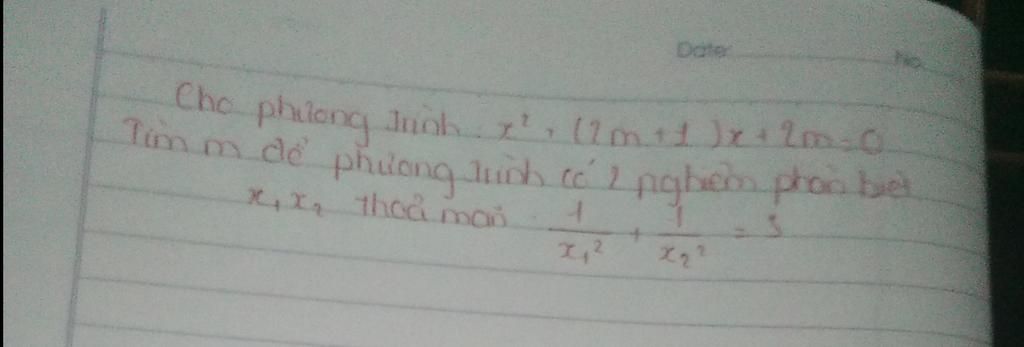 Date: No.
Cho phương trình: x² + (2m+1)x + 2m = 0
Tìm m để phương trình có 2 nghiệm phân biệt
x₁ x₂ thoả mãn 1/x₁² + 1/x₂² =